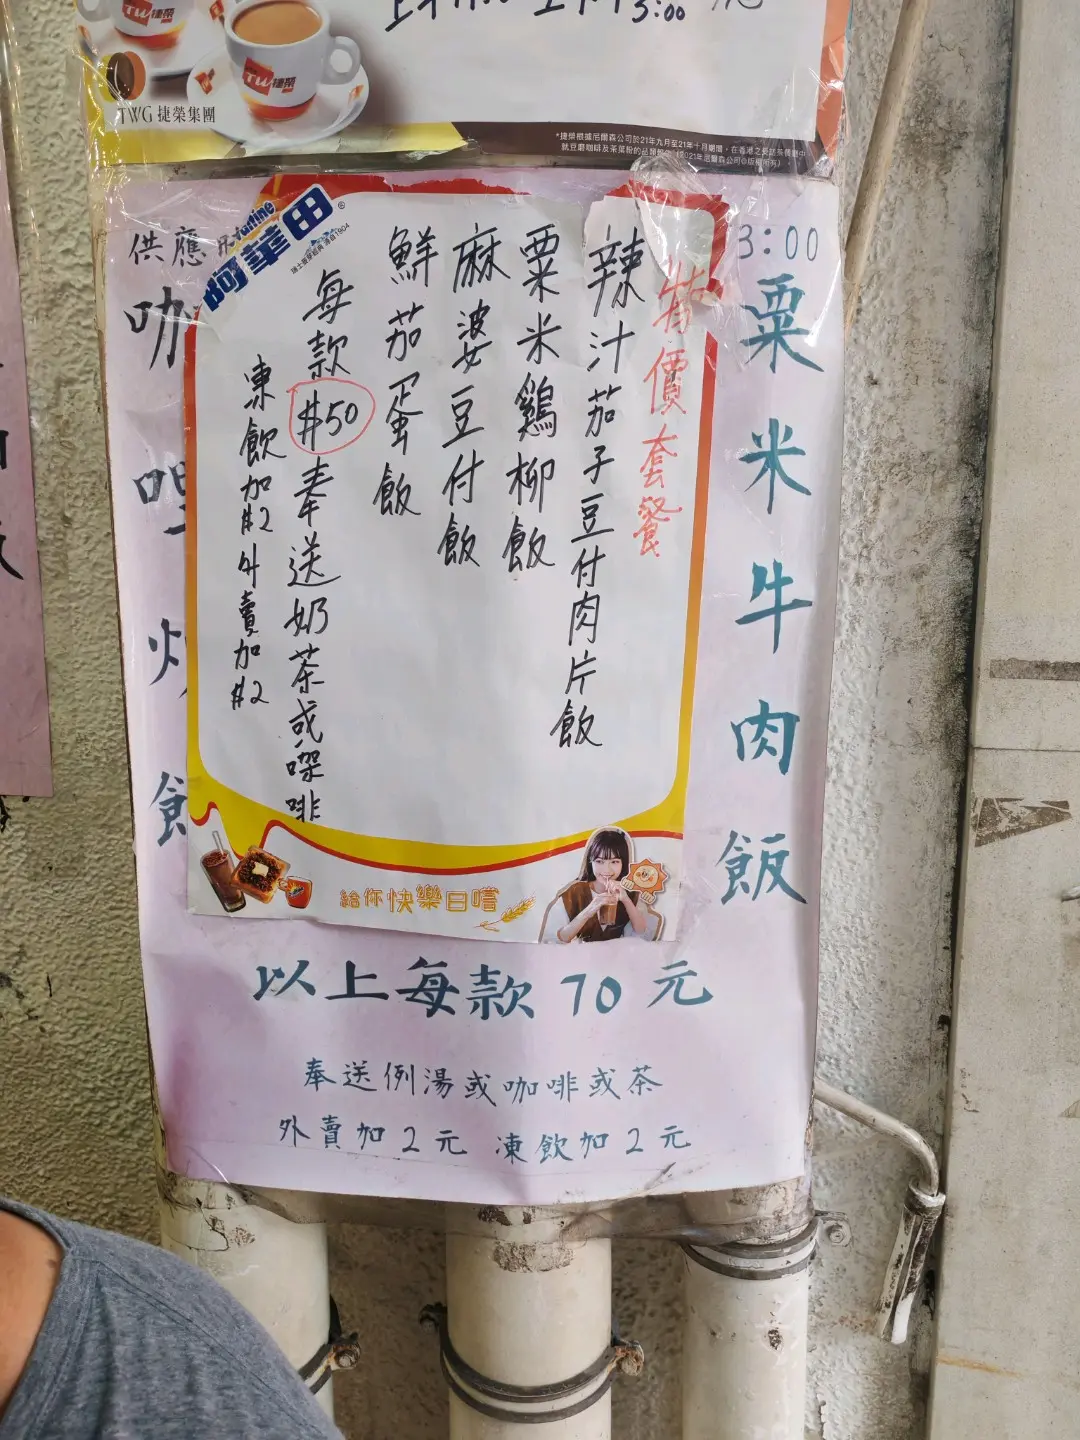 3:00
TW捷榮
TWG 捷榮集團
3:00
供應
粟米牛肉飯
阿華田
瑞士皇牌經典 源自1904
特價套餐
辣汁茄子豆付肉片飯
粟米鷄柳飯
麻婆豆付飯
鮮茄蛋飯
每款#50奉送奶茶或㗎啡
凍飲加#2外賣加#2
給你快樂日嚐
以上每款70元
奉送例湯或咖啡或茶
外賣加2元 凍飲加2元